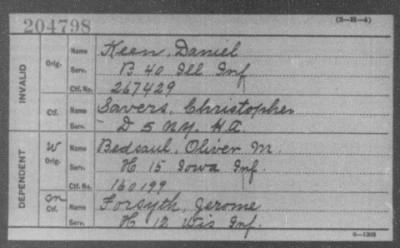 204798
(3-III-4)
INVALID
Orig.
Name Keen, Daniel
Serv. B 40 Ill Inf
Ctf. No. 267429
Ctf.
Name Savers, Christopher
Serv. D 5 N.Y. H.A.
DEPENDENT
W
Orig.
Name Bedsaul, Oliver M.
Serv. H 15 Iowa Inf.
Ctf. No. 160199
Ctf.
Name Forsyth, Jerome
Serv. H 12 Wis Inf.